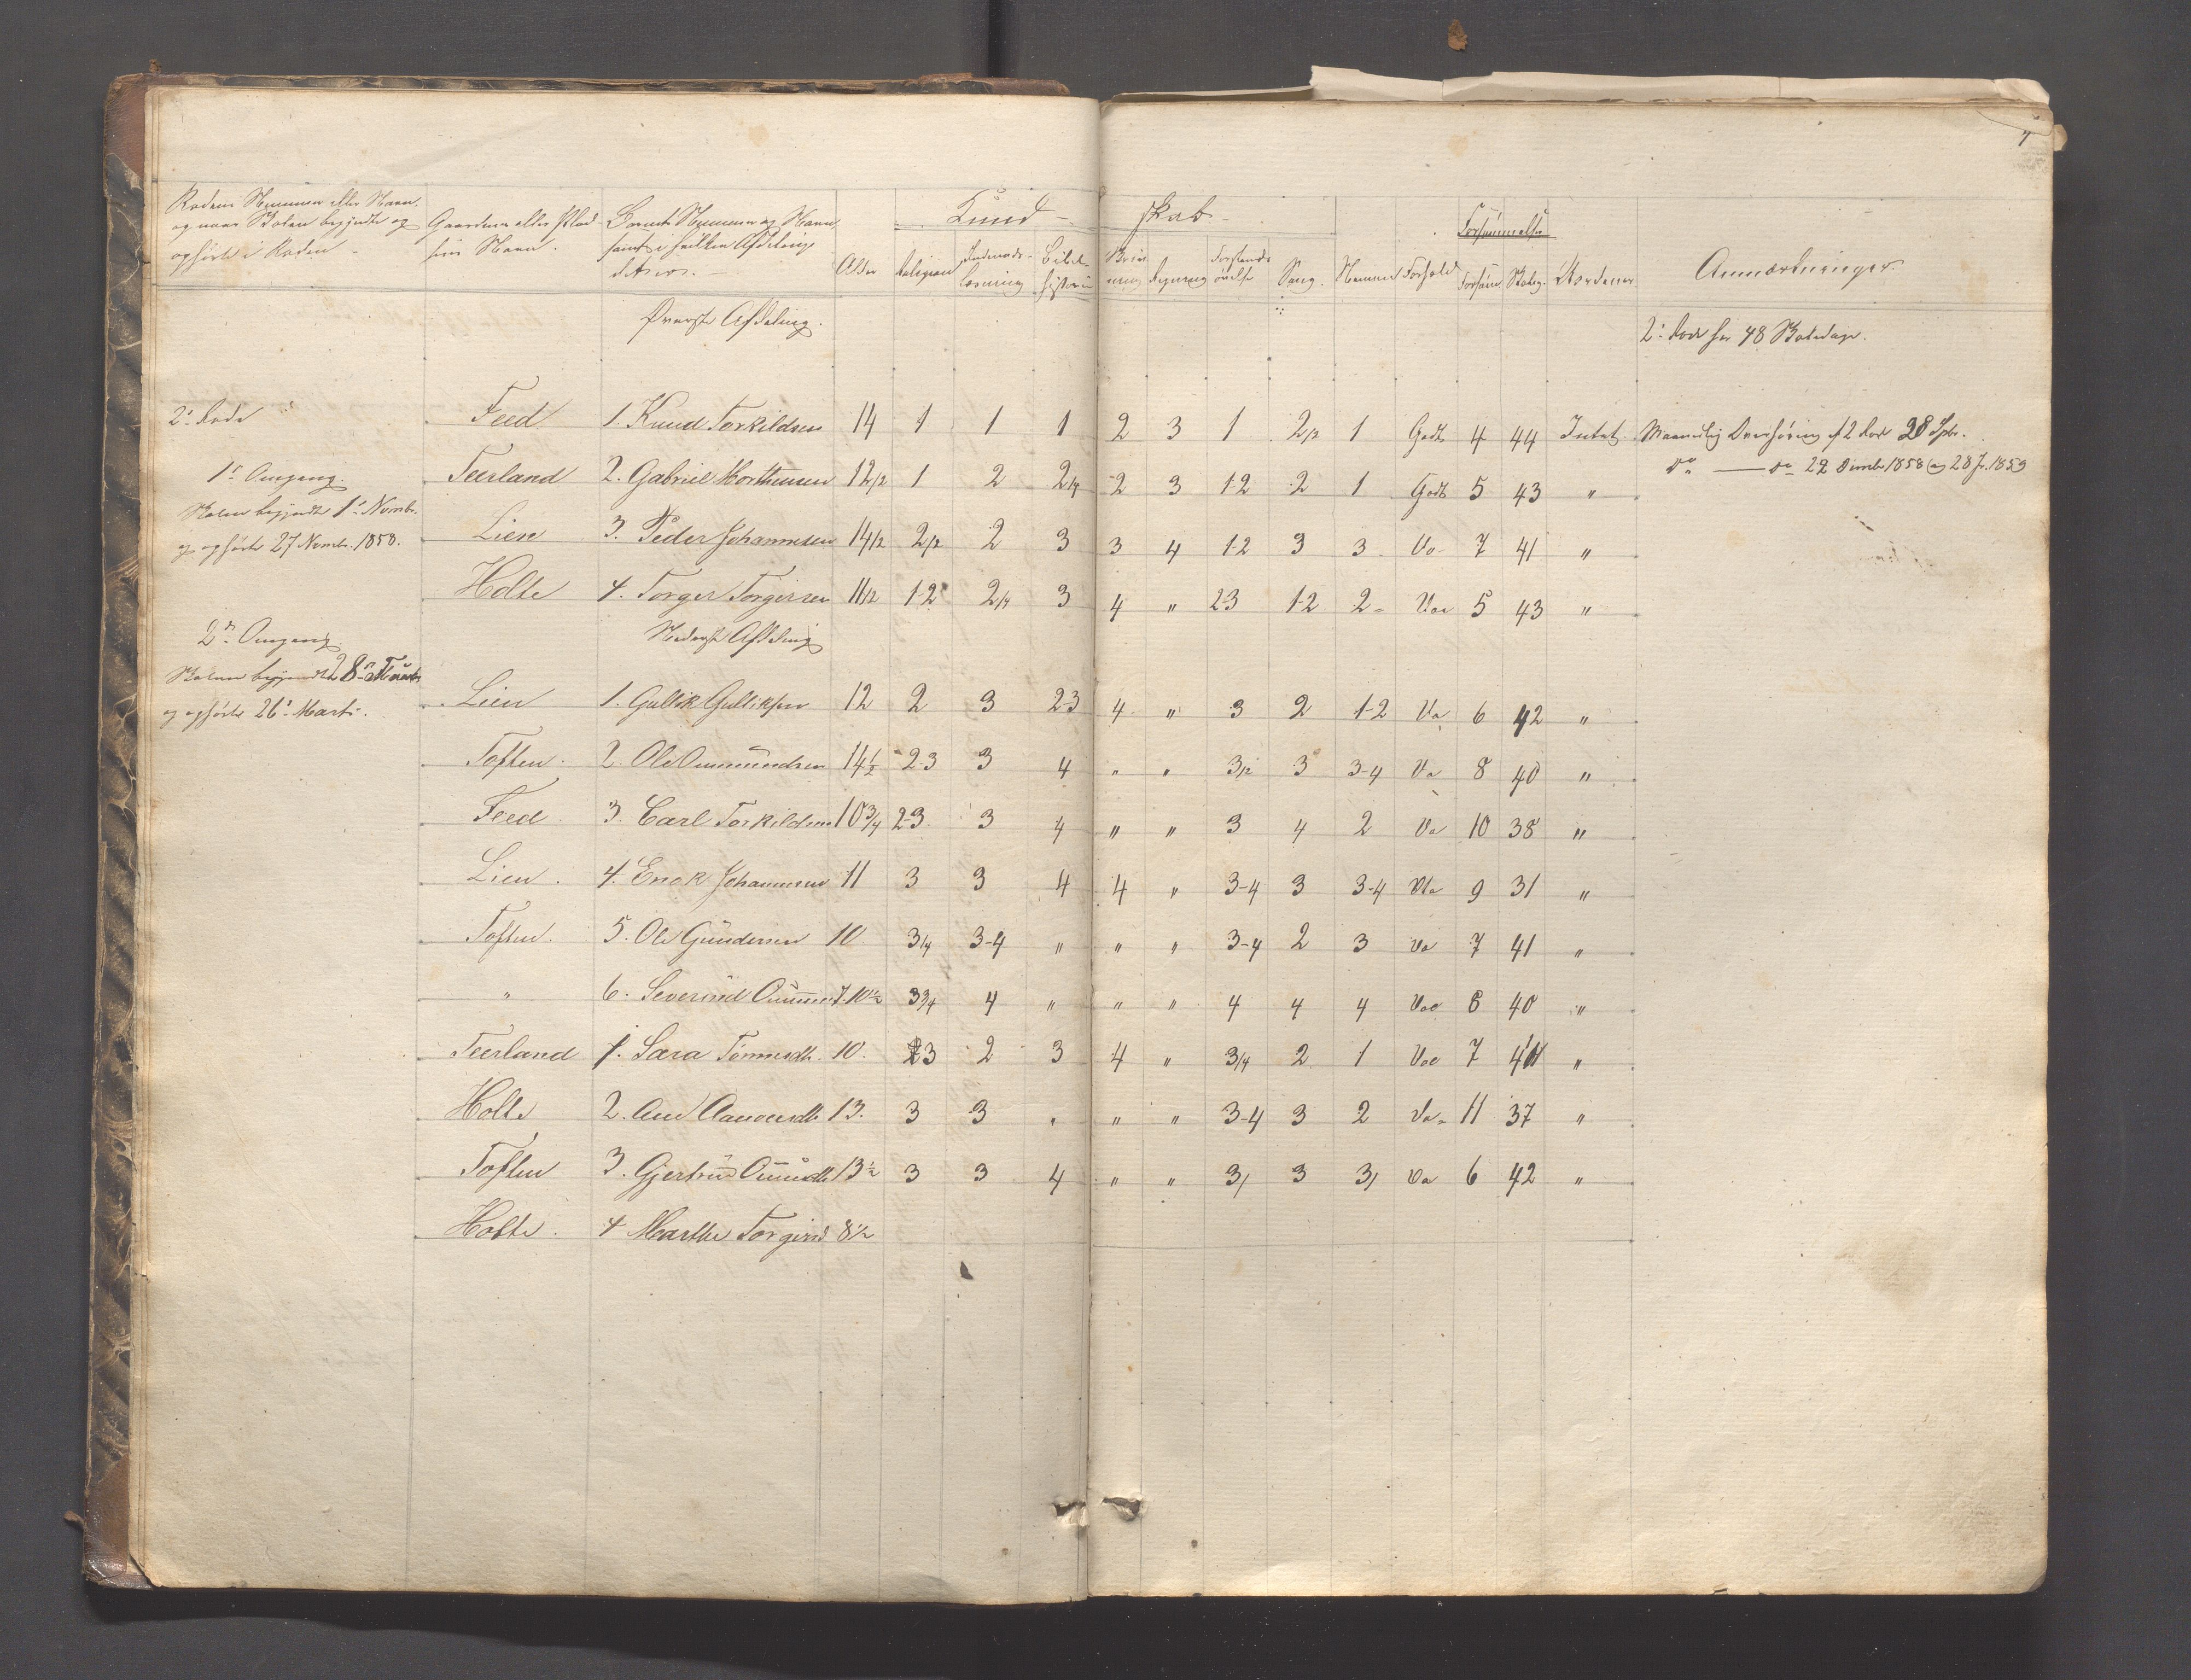 7
Rodens Nummer eller Navn,
og naar Skolen begyndte og
ophørte i Roden
Gaardens eller Plad-
sens Navn.
Barnets Nummer og Navn
samt i hvilken Afdeling
det er.
Alder
Kund- skab
Religion
Indenads-
læsning
Bibel-
historie
Skriv
ning
Regning
Forstands
øvelse
Sang.
Nemme
Forhold
Forsømmelse
Forsøm.
Skoleg.
Uordener
Anmærkninger.
Øverste Afdeling.
2: Rode har 48 Skoledage.
2: Rode
Feed 1. Knud Torkildsen 14 1 1 1 2 3 1 2/2 1 Godt 4 44 Intet. Maanedlig Overhøring i 2 Rode 28
1s Omgang.
Teerland 2. Gabriel Morthensen 12/2 1 2 2/4 2 3 1-2 2 1 Godt 5 43 " Do — do 22 1858 og 28 1859
Skolen begyndte 1s Novmbr.
og ophørte 27 Novmbr. 1858.
Lien 3. Peder Johannesen 14/2 2/2 2 3 3 4 1-2 3 3 Do 7 41 "
Holte 4. Torger Torgersen 11/2 1-2 2/4 3 4 " 2-3 1-2 2 Do 5 43 "
2n Omgang
Nederste Afdeling
Skolen begyndte 28
og ophørte 26s Marts.
Lien 1. Gullik Gulliksen 12 2 3 2-3 4 " 3 2 1-2 Do 6 42 "
Toften. 2. Ole Ommundsen 14½ 2-3 3 4 " " 3/2 3 3-4 Do 8 40 "
Feed. 3. Carl Torkildsen 10¾ 2-3. 3 4 " " 3 4 2 Do 10 38 "
Lien. 4. Enok Johannesen 11 3 3 4 4 " 3-4 3 3-4 Do 9 31 "
Toften. 5. Ole Gundersen 10 3/4 3-4 " " " 3-4 2 3 Do 7 41 "
" 6. Severind 10½ 3¾ 4 " " " 4 4 4 Do 8 40 "
Teerland 1. Sara Tønnesdtr. 10. 23 2 3 4 " 3/4 2 1 Do 7 41 "
Holte 2. Ane 13. 3 3 " " " 3-4 3 2 Do 11 37 "
Toften 3. Gjertrud 13½ 3 3 4 " " 3/ 3 3/ Do 6 42 "
Holte. 4 Marthe Torgersd 8½